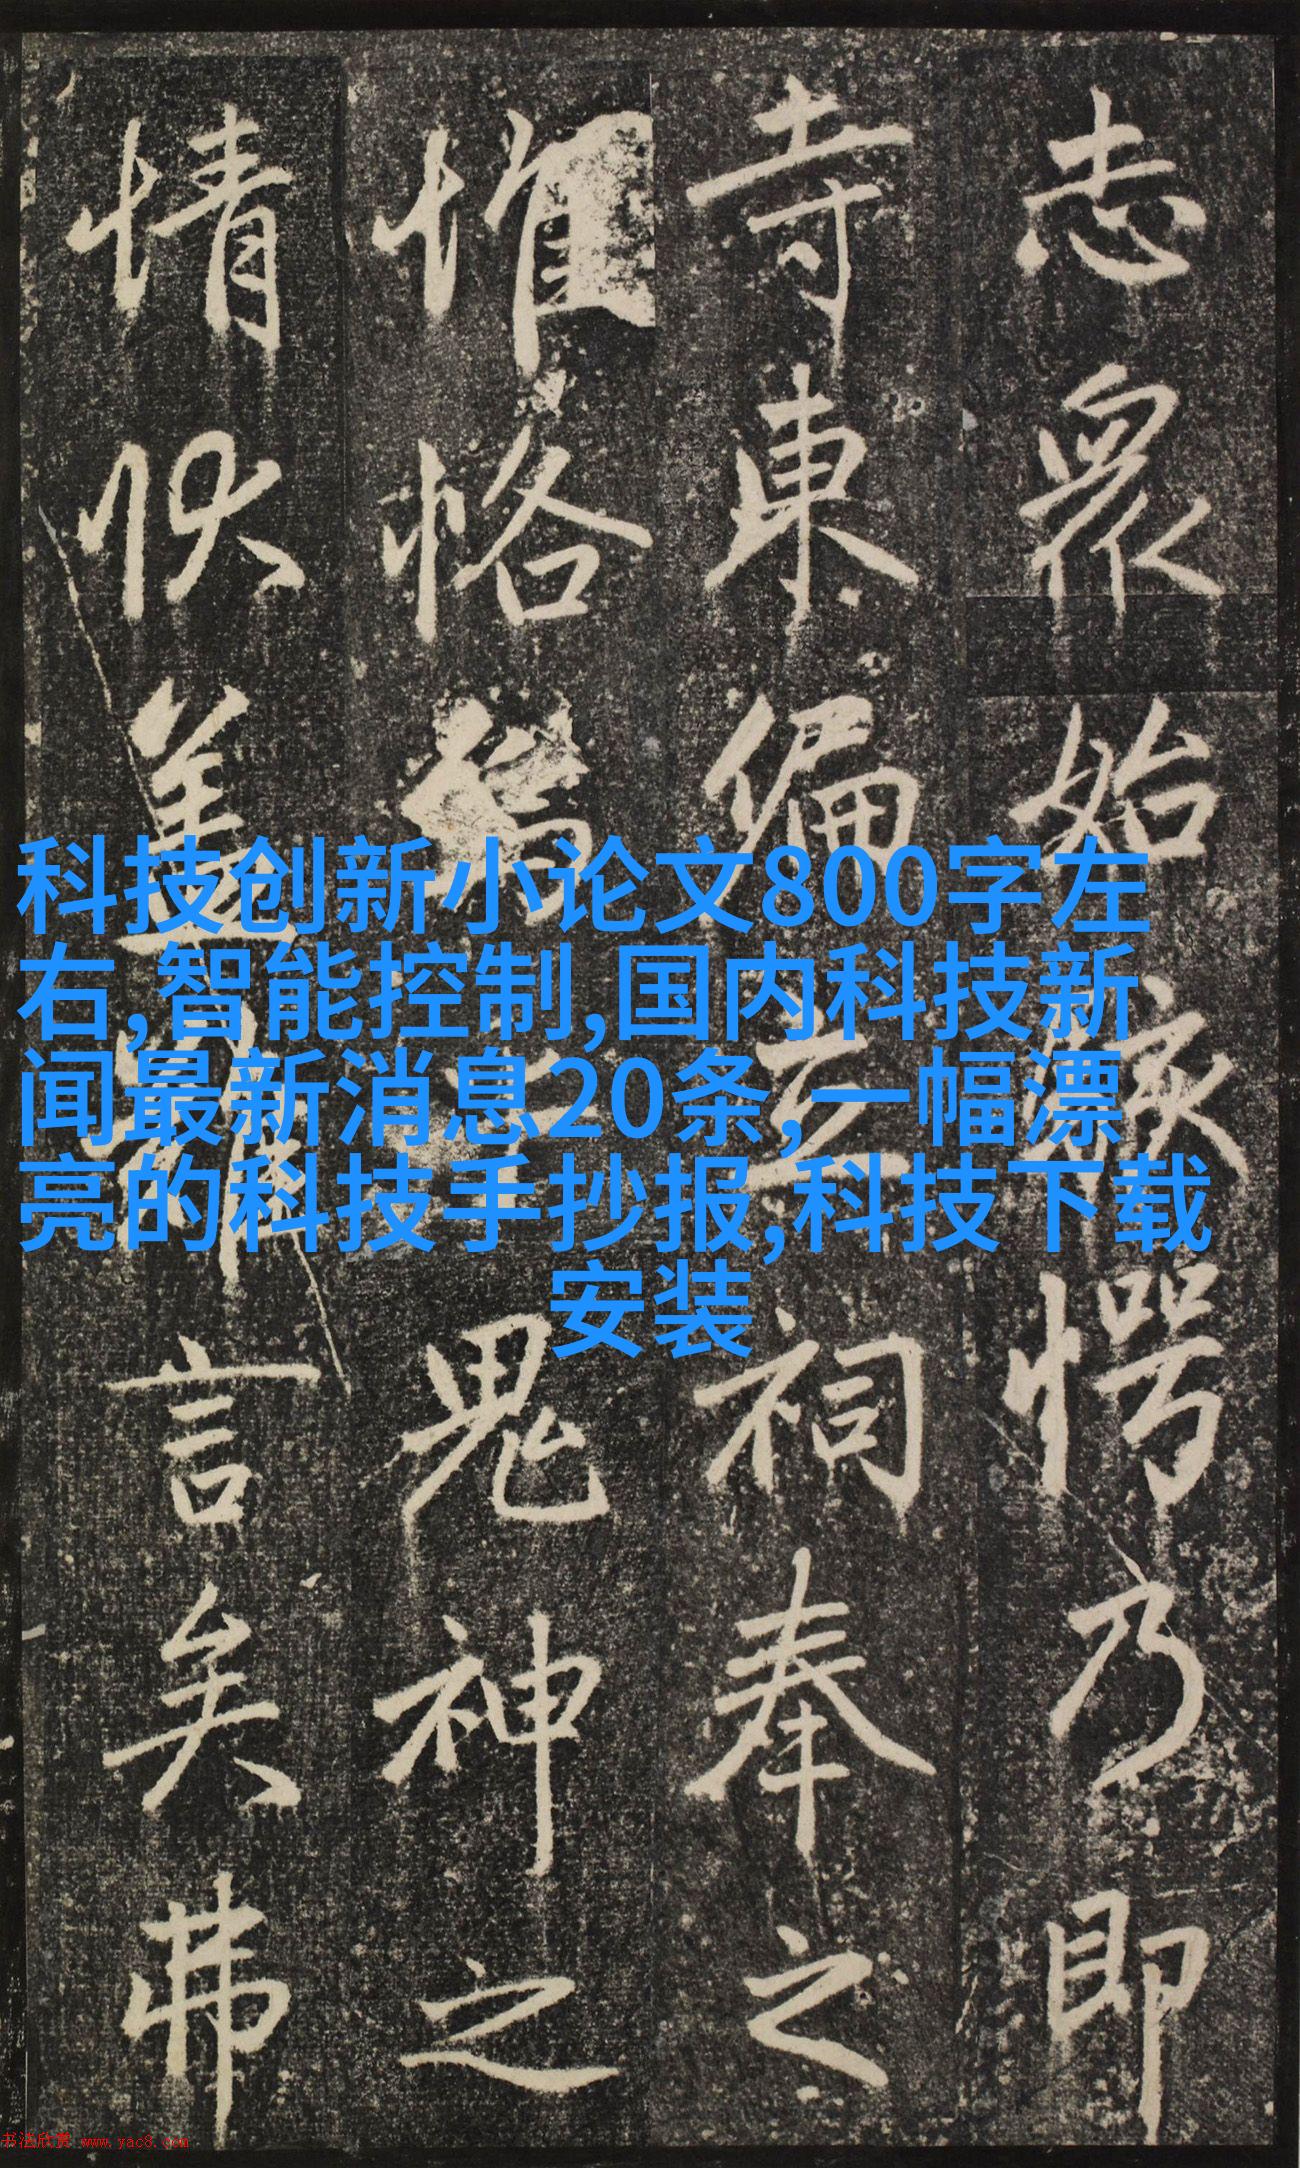 志眾始駭愕乃即
寺東偏立祠奉之
惟恪鬼神之
情狀蓋難言矣弗
科技创新小论文800字左
右,智能控制,国内科技新
闻最新消息20条，一幅漂
亮的科技手抄报,科技下载
安装
书法欣赏 www.yac8.com